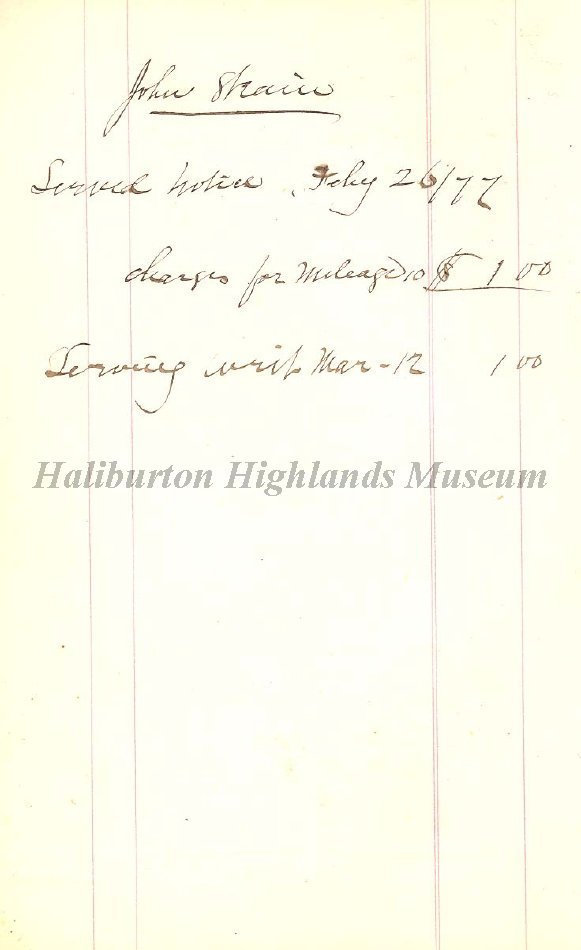 John Skain
Served notice Feby 26/77
charges for Mileage 10 $ 1 00
Serving writ Mar - 12 1 00
Haliburton Highlands Museum